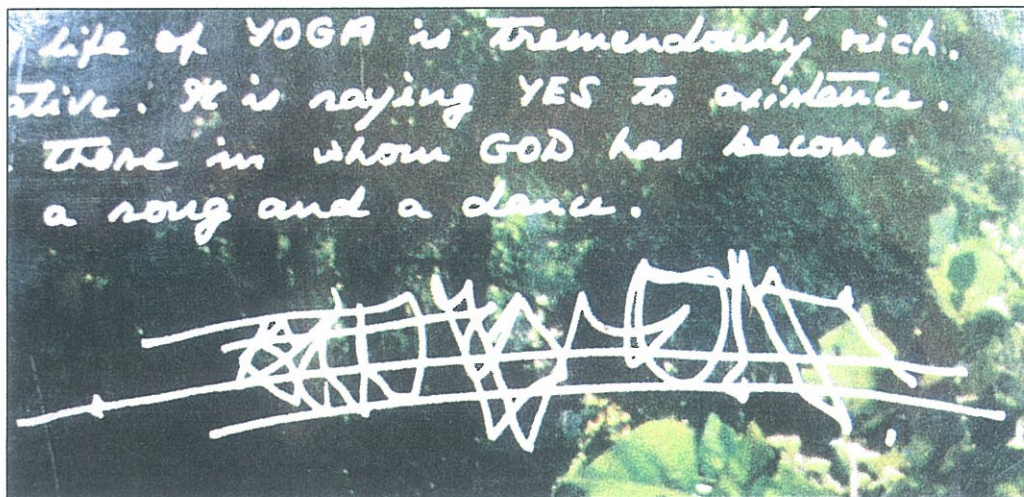 life of YOGA is tremendously rich.
ative. It is saying YES to existance.
those in whom GOD has become
a song and a dance.